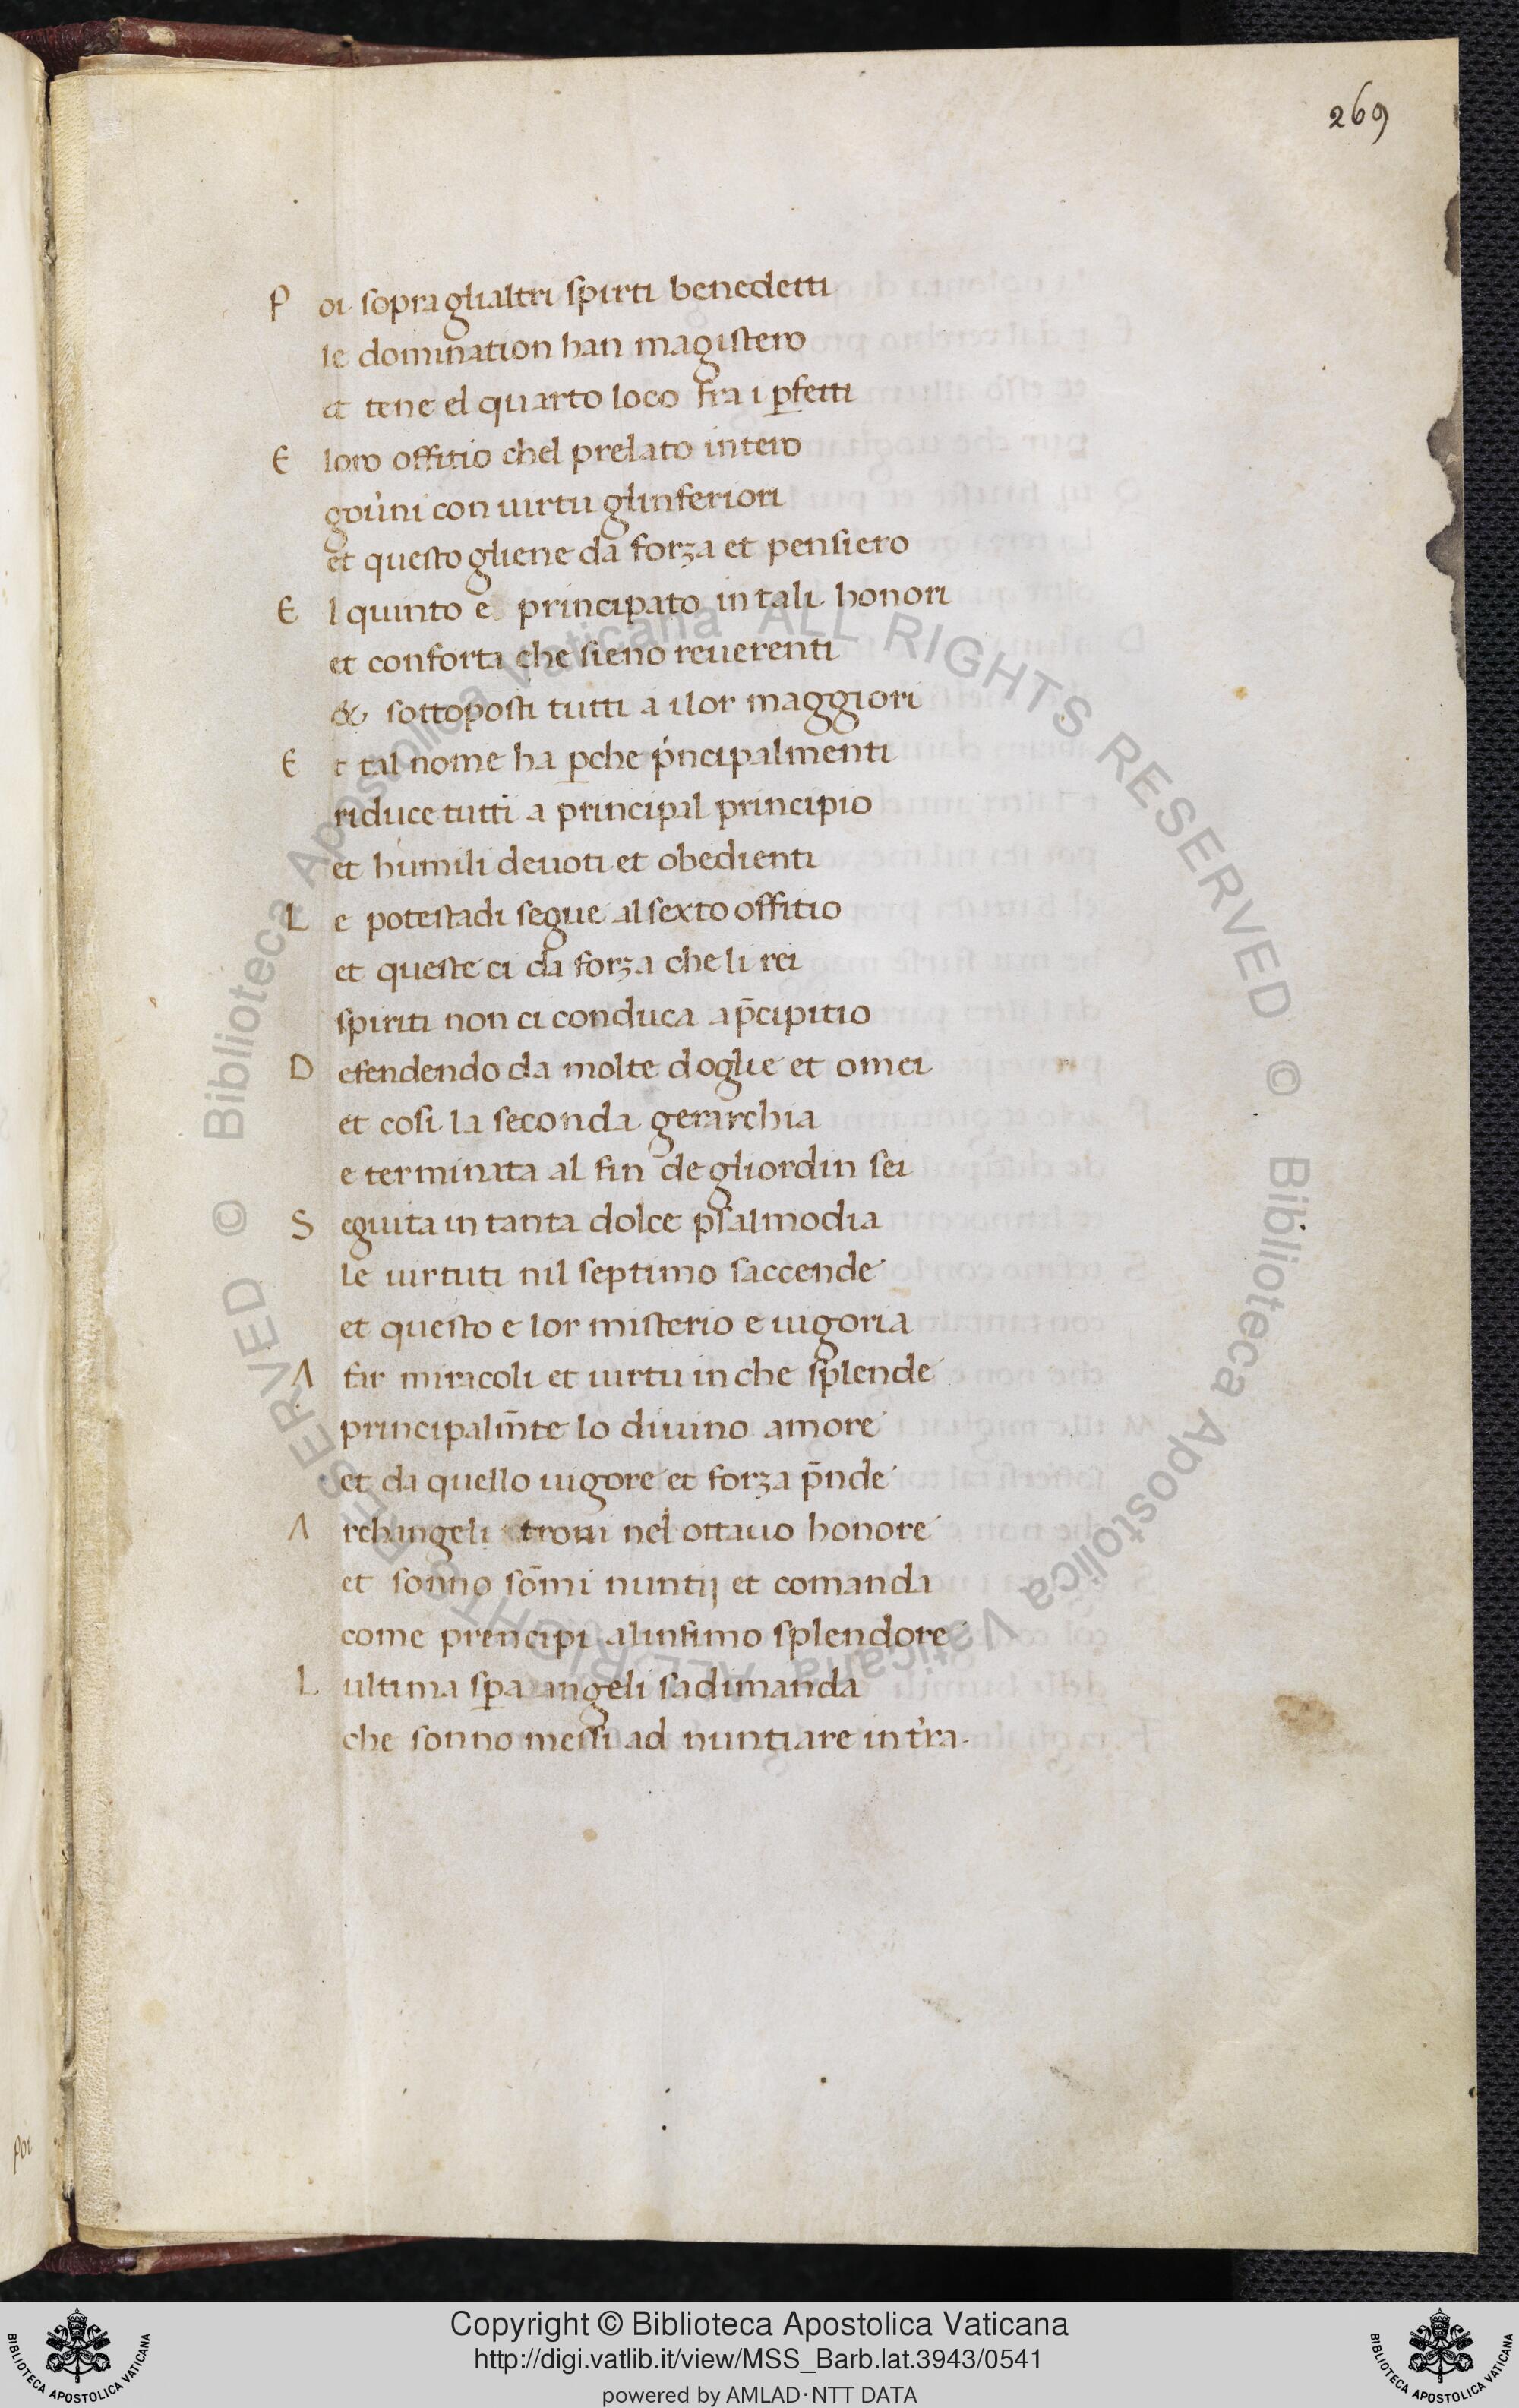 269
P oi sopra glialtri spirti benedetti
le domination han magistero
et tene el quarto loco fra i ꝑfetti
E loro offitio chel prelato intero
gou̓ni con uirtu glinferiori
et questo gliene da forza et pensiero
E l quinto e principato in tali honori
et conforta che sieno reuerenti
& sottoposti tutti a i lor maggiori
E t tal nome ha ꝑche pͥncipalmenti
riduce tutti a principal principio
et humili deuoti et obedienti
L e potestadi segue al sexto offitio
et queste ci da forza che li rei
spiriti non ci conduca a p̄cipitio
D efendendo da molte doglie et omei
et cosi la seconda gerarchia
e terminata al fin de gliordin sei
S eguita in tanta dolce psalmodia
le uirtuti nil septimo saccende
et questo e lor misterio e uigoria
A far miracoli et uirtu in che splende
principalm̄te lo diuino amore
et da quello uigore et forza p̄nde
A rchangeli troui nel ottauo honore
et sonno som̄i nuntij et comanda
come prencipi alinfimo splendore
L ultima sꝑa angeli sadimanda
che sonno messi ad nuntiare in t̓ra.
poi
Biblioteca Apostolica Vaticana ALL RIGHTS RESERVED © Biblioteca Apostolica Vaticana ALL RIGHTS RESERVED ©
BIBLIOTECA APOSTOLICA VATICANA
Copyright © Biblioteca Apostolica Vaticana
http://digi.vatlib.it/view/MSS_Barb.lat.3943/0541
powered by AMLAD·NTT DATA
BIBLIOTECA APOSTOLICA VATICANA